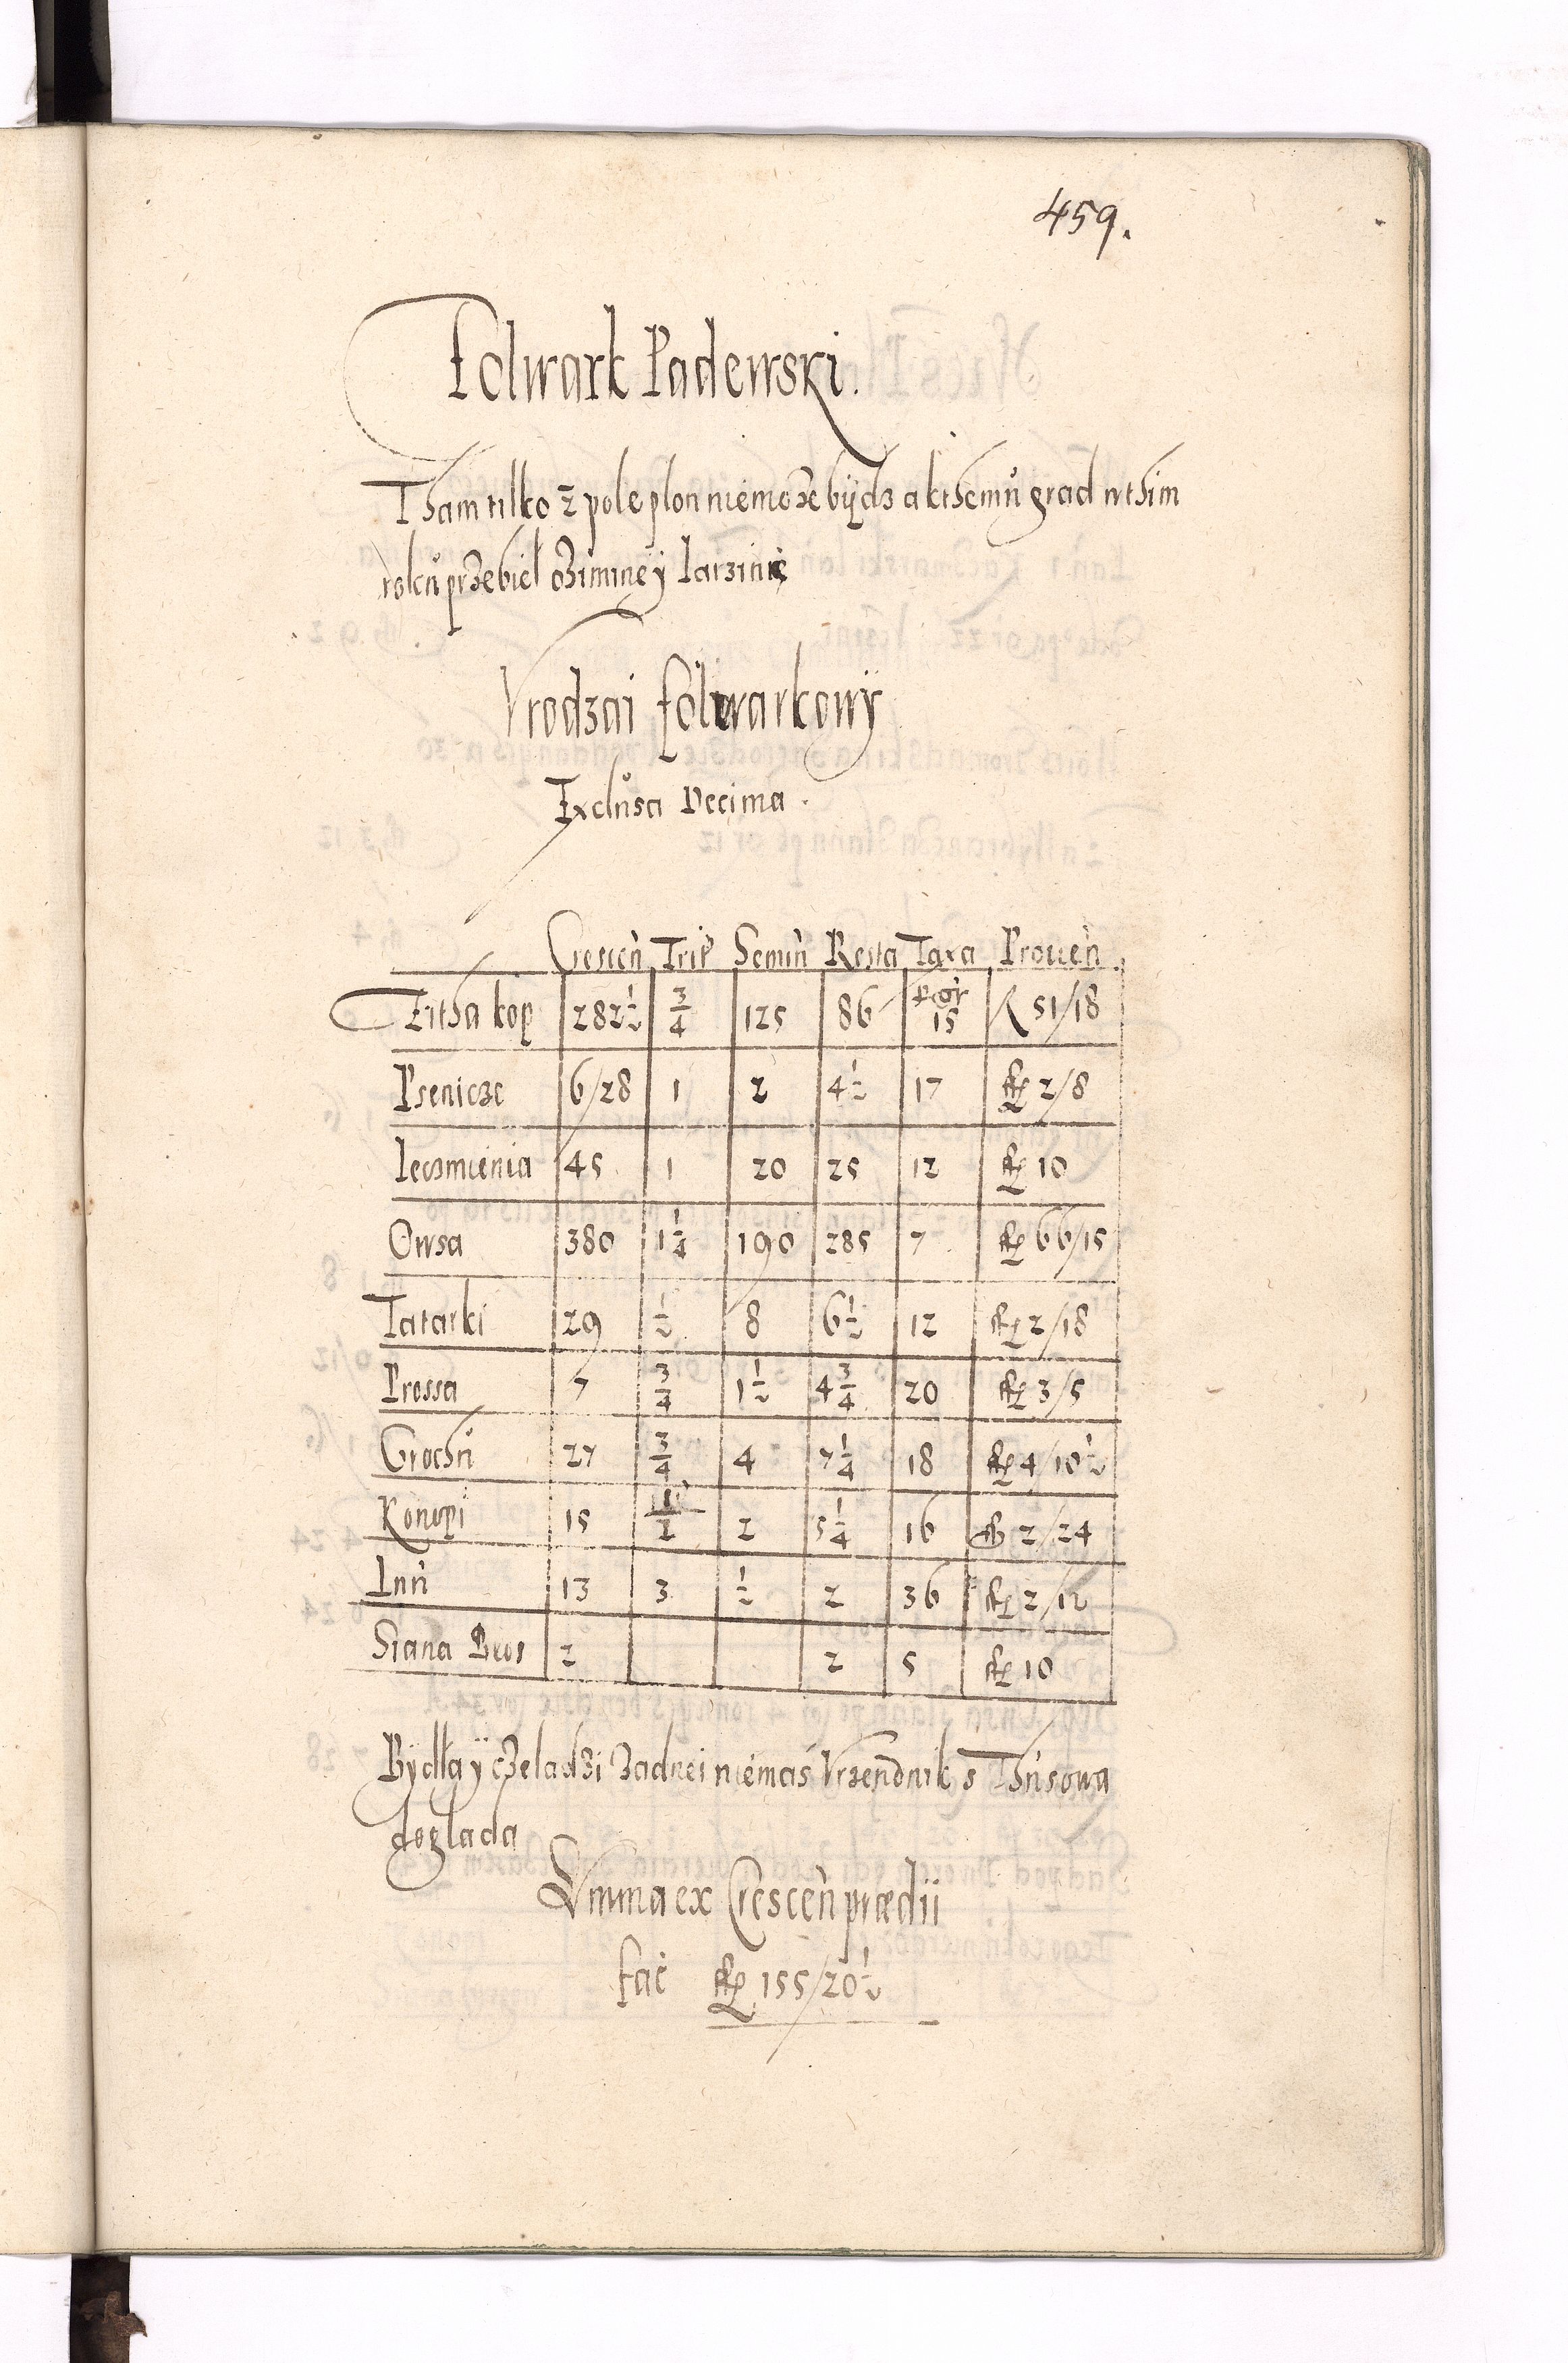 459.
Folwark Padewski.
Tham tilko z pole plon niemoze bydz a kthemu grad wthim
roku przebiel oziminey Iarzinie
Vrodzai folwarkowy
Exclusa Decima.
Crescen Trit Semin Resta Taxa Prouen
Zitha kop 282½ ¾ 125 86 p cor 15 R 51/18
Psenicze 6/28 1 2 4½ 17 fl 2/8
Ieczmienia 45 1 20 25 12 fl 10
Owsa 380 1¼ 190 285 7 fl 66/15
Tatarki 29 ½ 8 6½ 12 fl 2/18
Prossa 7 ¾ 1½ 4¾ 20 fl 3/5
Grochu 27 ¾ 4 7¼ 18 fl 4/10½
Konopi 15 2 5¼ 16 fl 2/24
Lnu 13 3 ½ 2 36 fl 2/12
Siana 2 2 5 fl 10
Bydla y czeladzi zadnei niemas Vrzendnik s Thusowa
doglada
Summa ex Crescen prædii
fac fl 155/20½